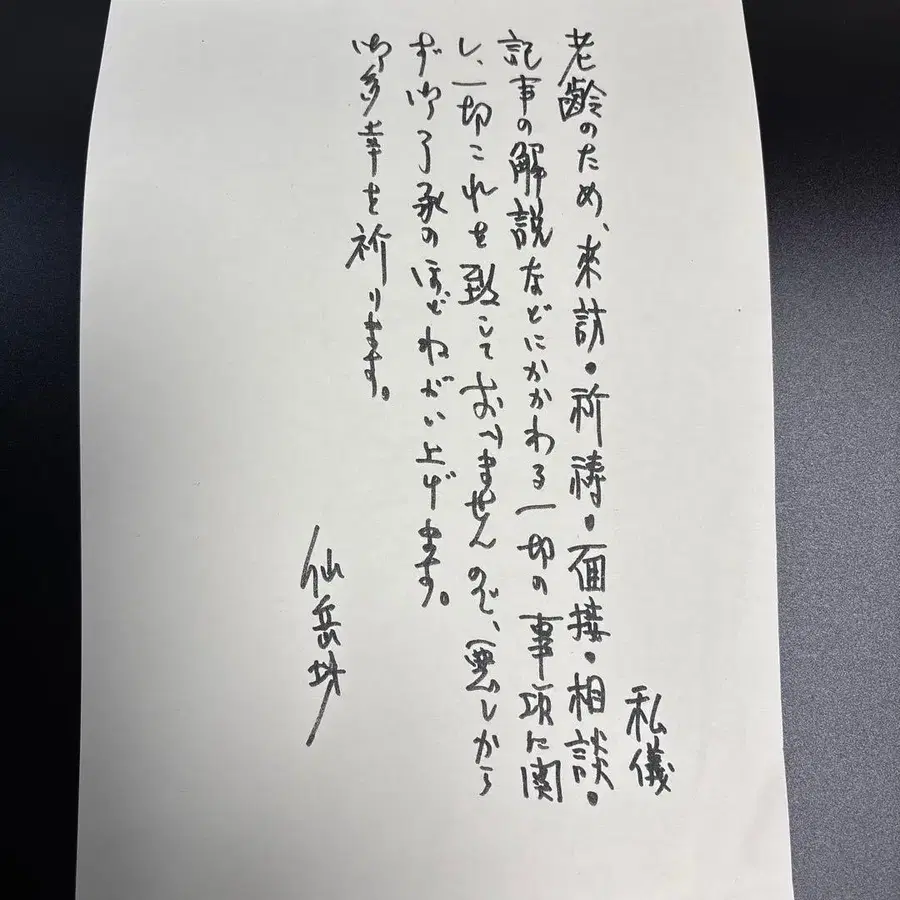 私儀
老齢のため、来訪・祈祷・面接・相談・
記事の解説などにかかわる一切の事項に関
し、一切これを致しておりませんので、悪しから
ず御了承のほどねがい上げます。
御多幸を祈ります。
仙岳